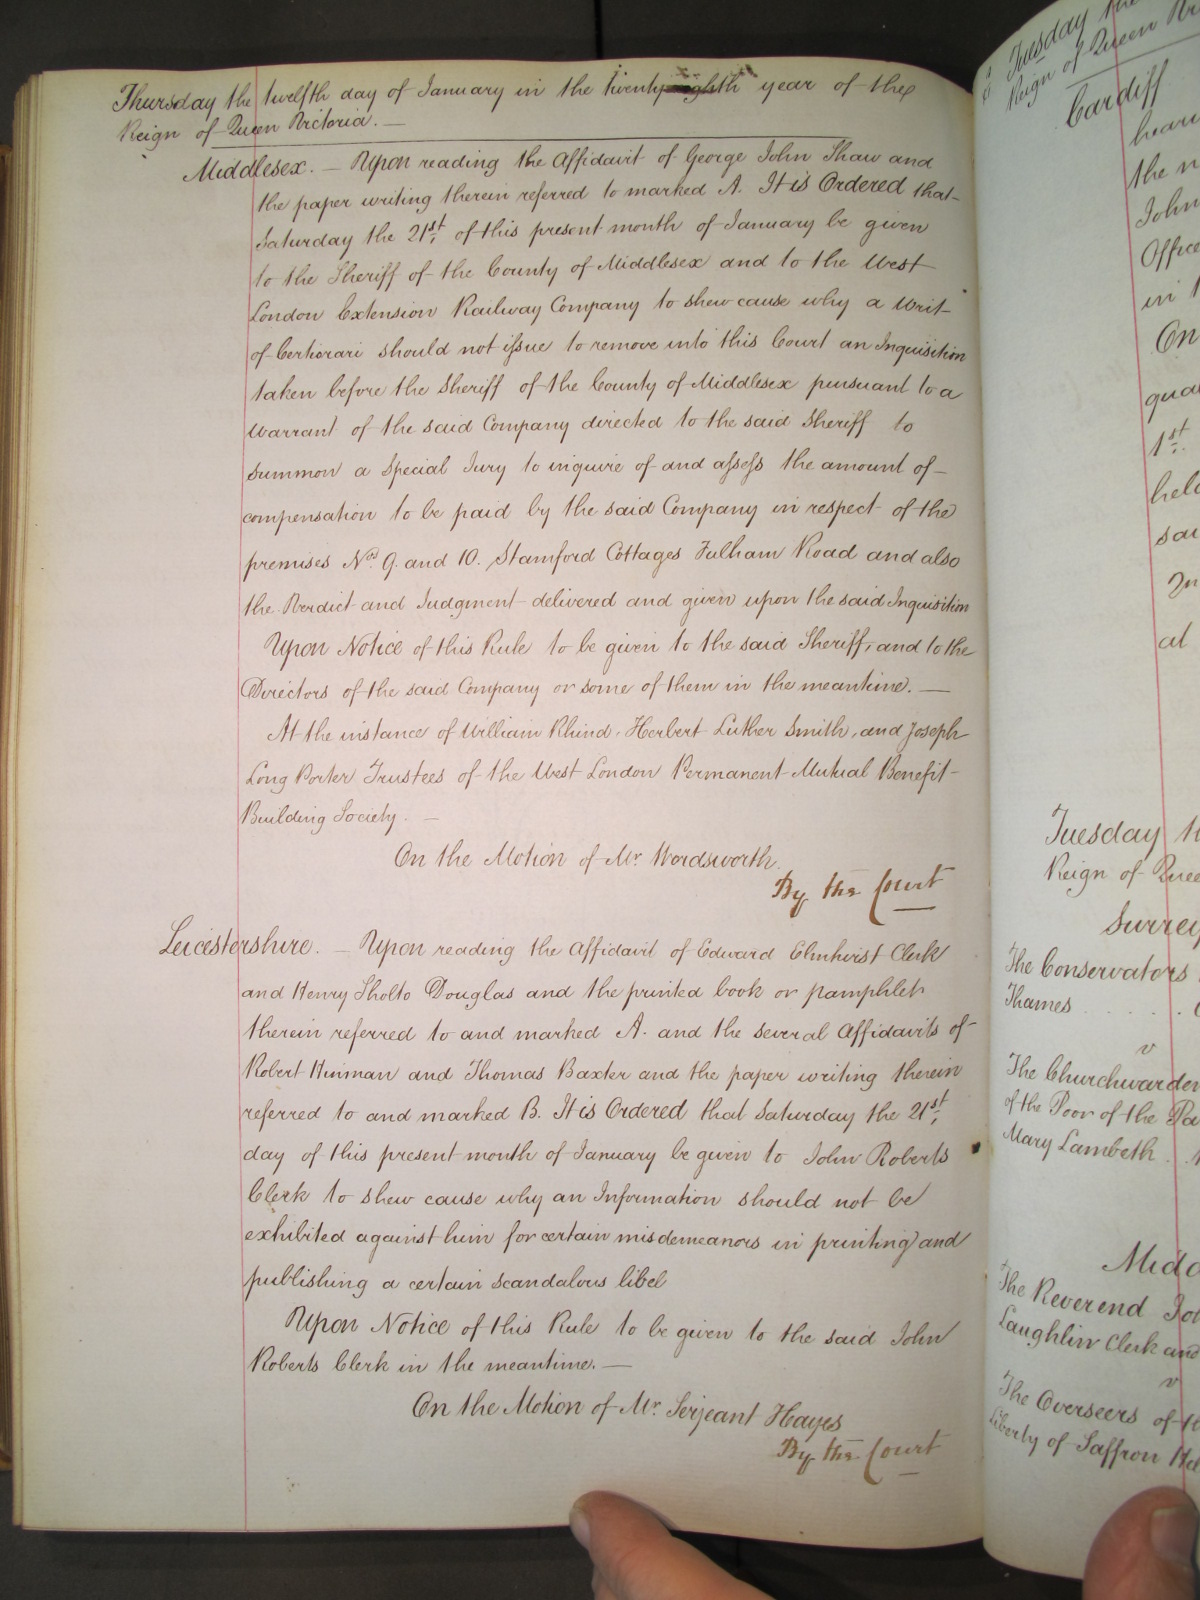 Thursday the twelfth day of January in the twenty eighth year of the
Reign of Queen Victoria. —
Middlesex. — Upon reading the Affidavit of George John Shaw and
the paper writing therein referred to marked A. It is Ordered that
Saturday the 21st, of this present month of January be given
to the Sheriff of the County of Middlesex and to the West
London Extension Railway Company to shew cause why a Writ
of Certiorari should not issue to remove into this Court an Inquisition
taken before the Sheriff of the County of Middlesex pursuant to a
Warrant of the said Company directed to the said Sheriff to
summon a Special Jury to inquire of and assess the amount of
compensation to be paid by the said Company in respect of the
premises Nos. 9. and 10. Stamford Cottages Fulham Road and also
the Verdict and Judgment delivered and given upon the said Inquisition
Upon Notice of this Rule to be given to the said Sheriff, and to the
Directors of the said Company or some of them in the meantime. —
At the instance of William Rhind, Herbert Luther Smith, and Joseph
Long Porter Trustees of the West London Permanent Mutual Benefit
Building Society. —
On the Motion of Mr. Wordsworth.
By the Court
Leicestershire. — Upon reading the Affidavit of Edward Elmhirst Clerk
and Henry Sholto Douglas and the printed book or pamphlet
therein referred to and marked A. and the several Affidavits of
Robert and Thomas Baxter and the paper writing therein
referred to and marked B. It is Ordered that Saturday the 21st,
day of this present month of January be given to John Roberts
Clerk to shew cause why an Information should not be
exhibited against him for certain misdemeanors in printing and
publishing a certain scandalous libel
Upon Notice of this Rule to be given to the said John
Roberts Clerk in the meantime. —
On the Motion of Mr. Serjeant Hayes
By the Court
Tuesday the
Reign of Queen
Cardiff
the
John
Office
in
On
1st.
held
at
Tuesday
Reign of
Surrey
The Conservators
Thames . . . . .
v
The Churchwarden
of the Poor of the
Mary Lambeth
The Reverend
Laughlin Clerk and
v
The Overseers of
Liberty of Saffron